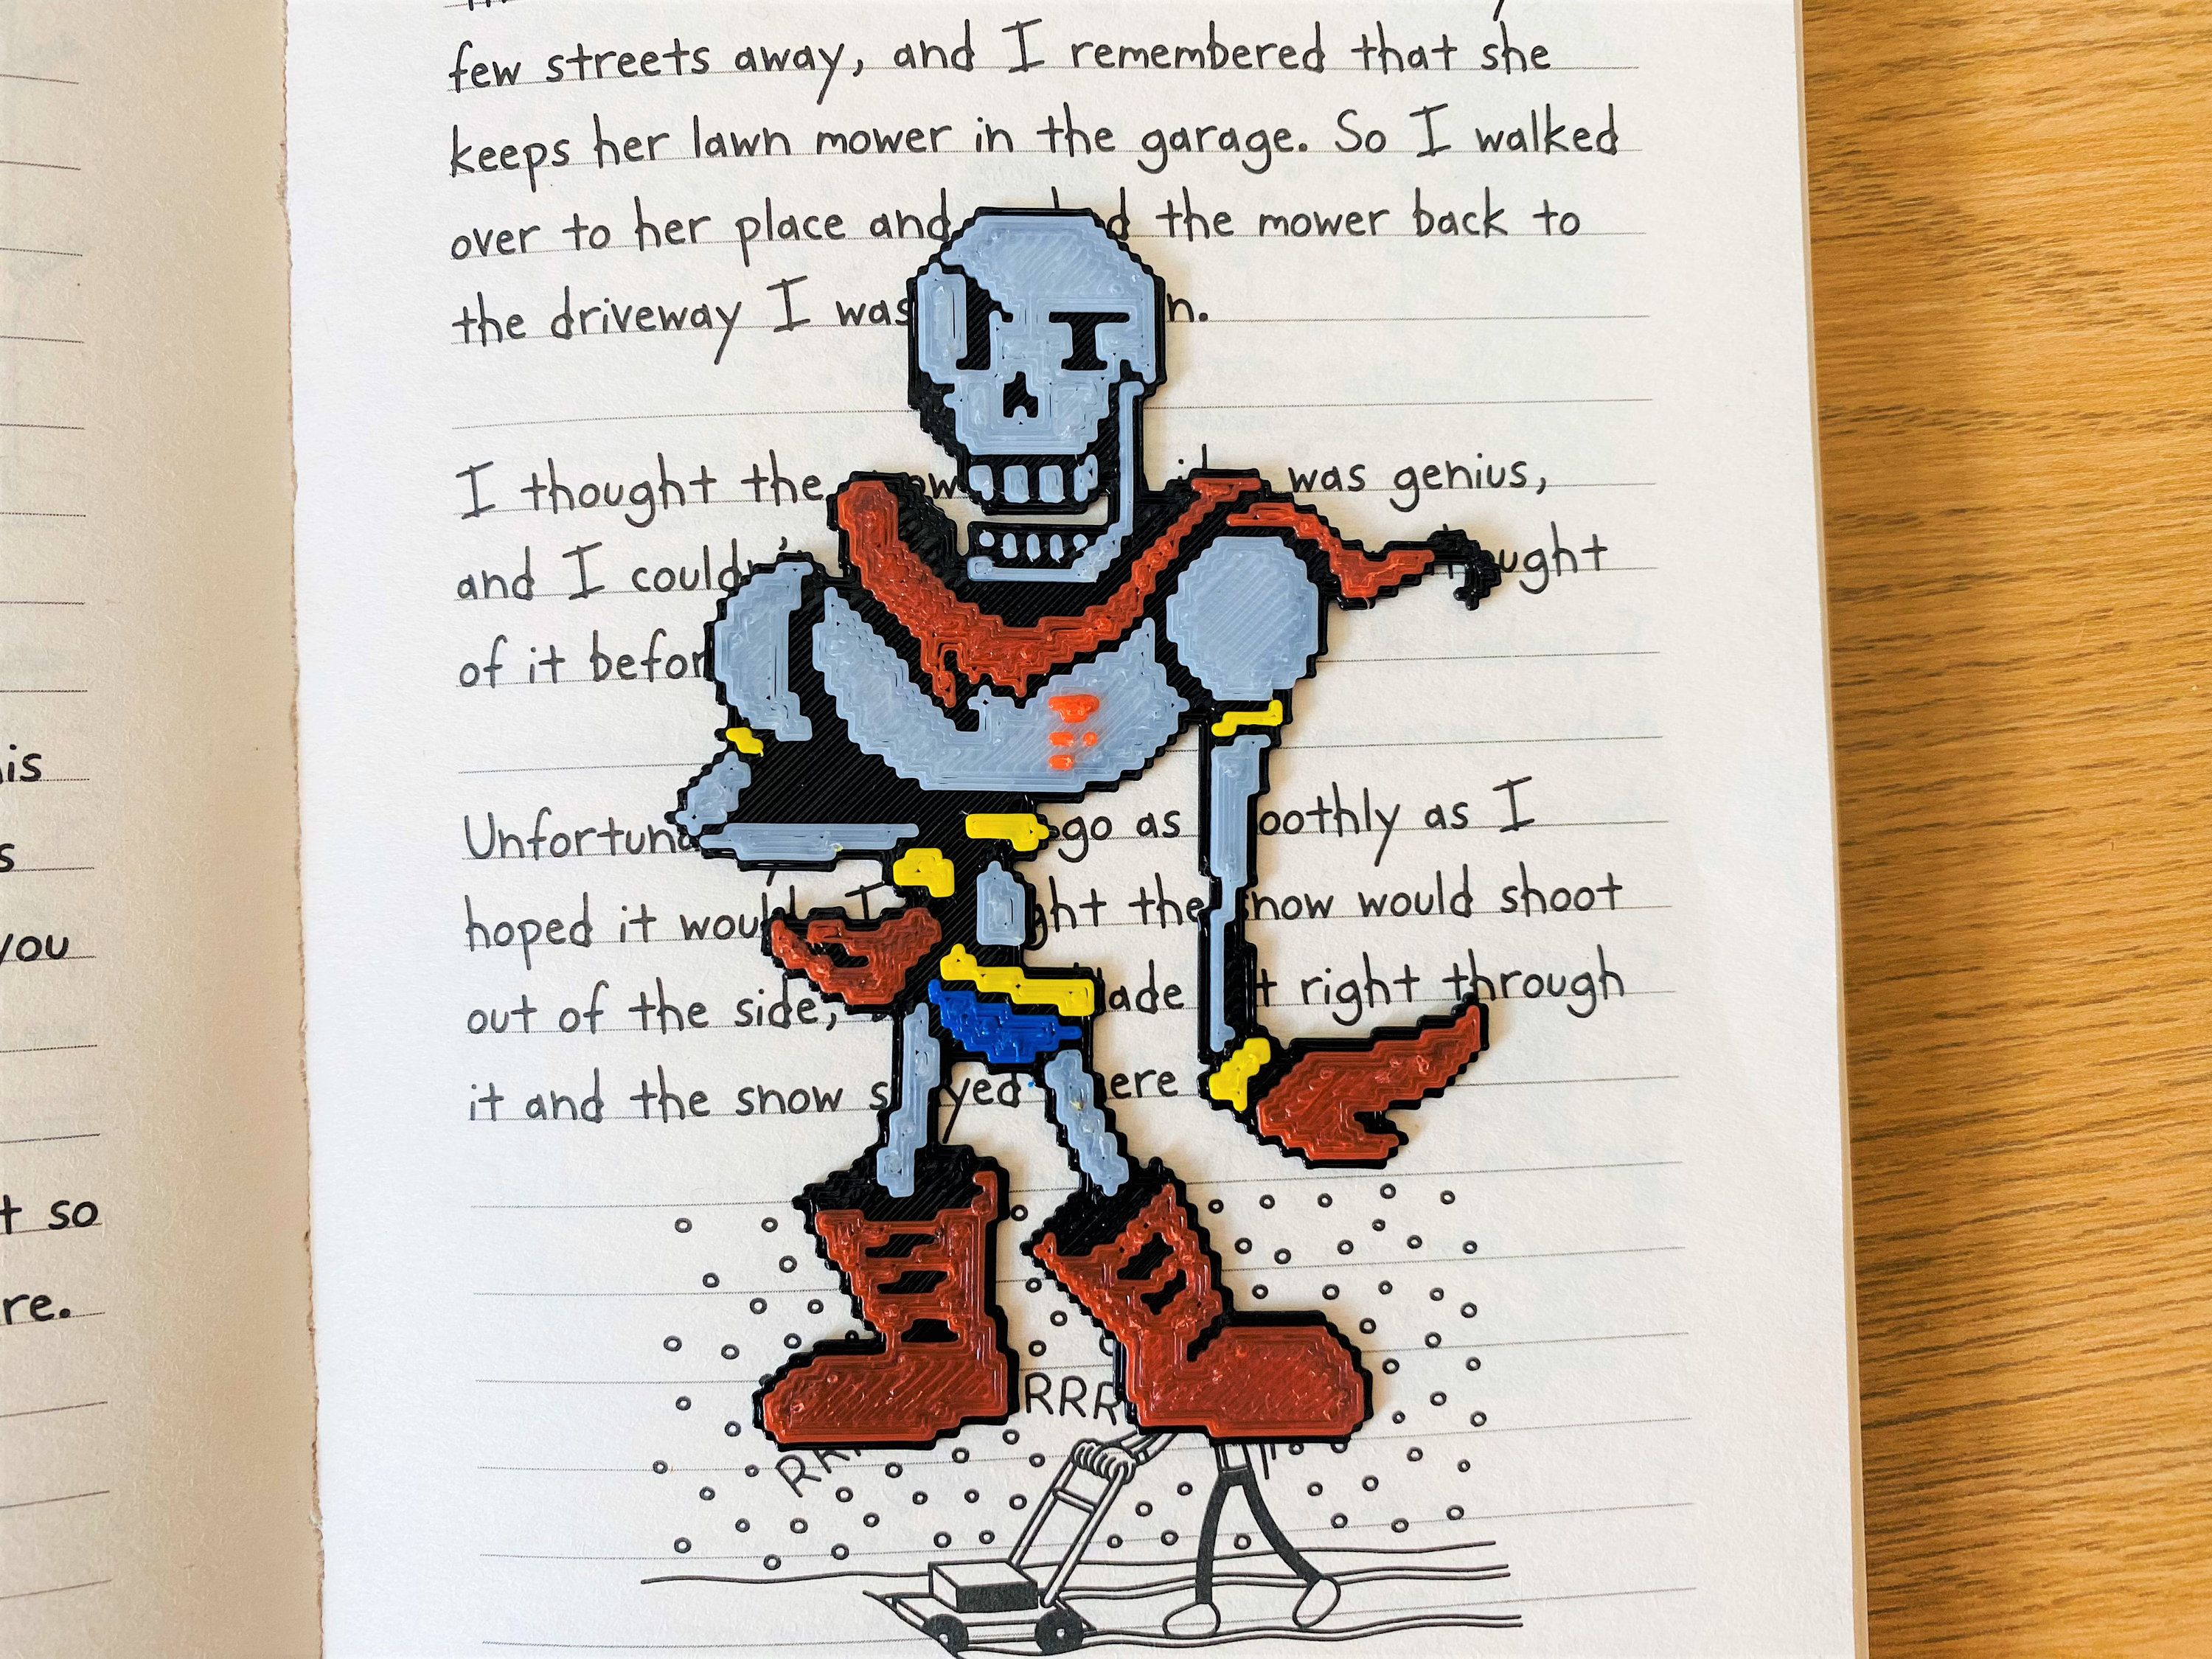 is
s
you
t so
re.
few streets away, and I remembered that she
keeps her lawn mower in the garage. So I walked
over to her place and the mower back to
the driveway I was n.
I thought the was genius,
and I could ught
of it befor
Unfortuna go as oothly as I
hoped it would I ght the snow would shoot
out of the side, lade t right through
it and the snow s yed ere
RRR